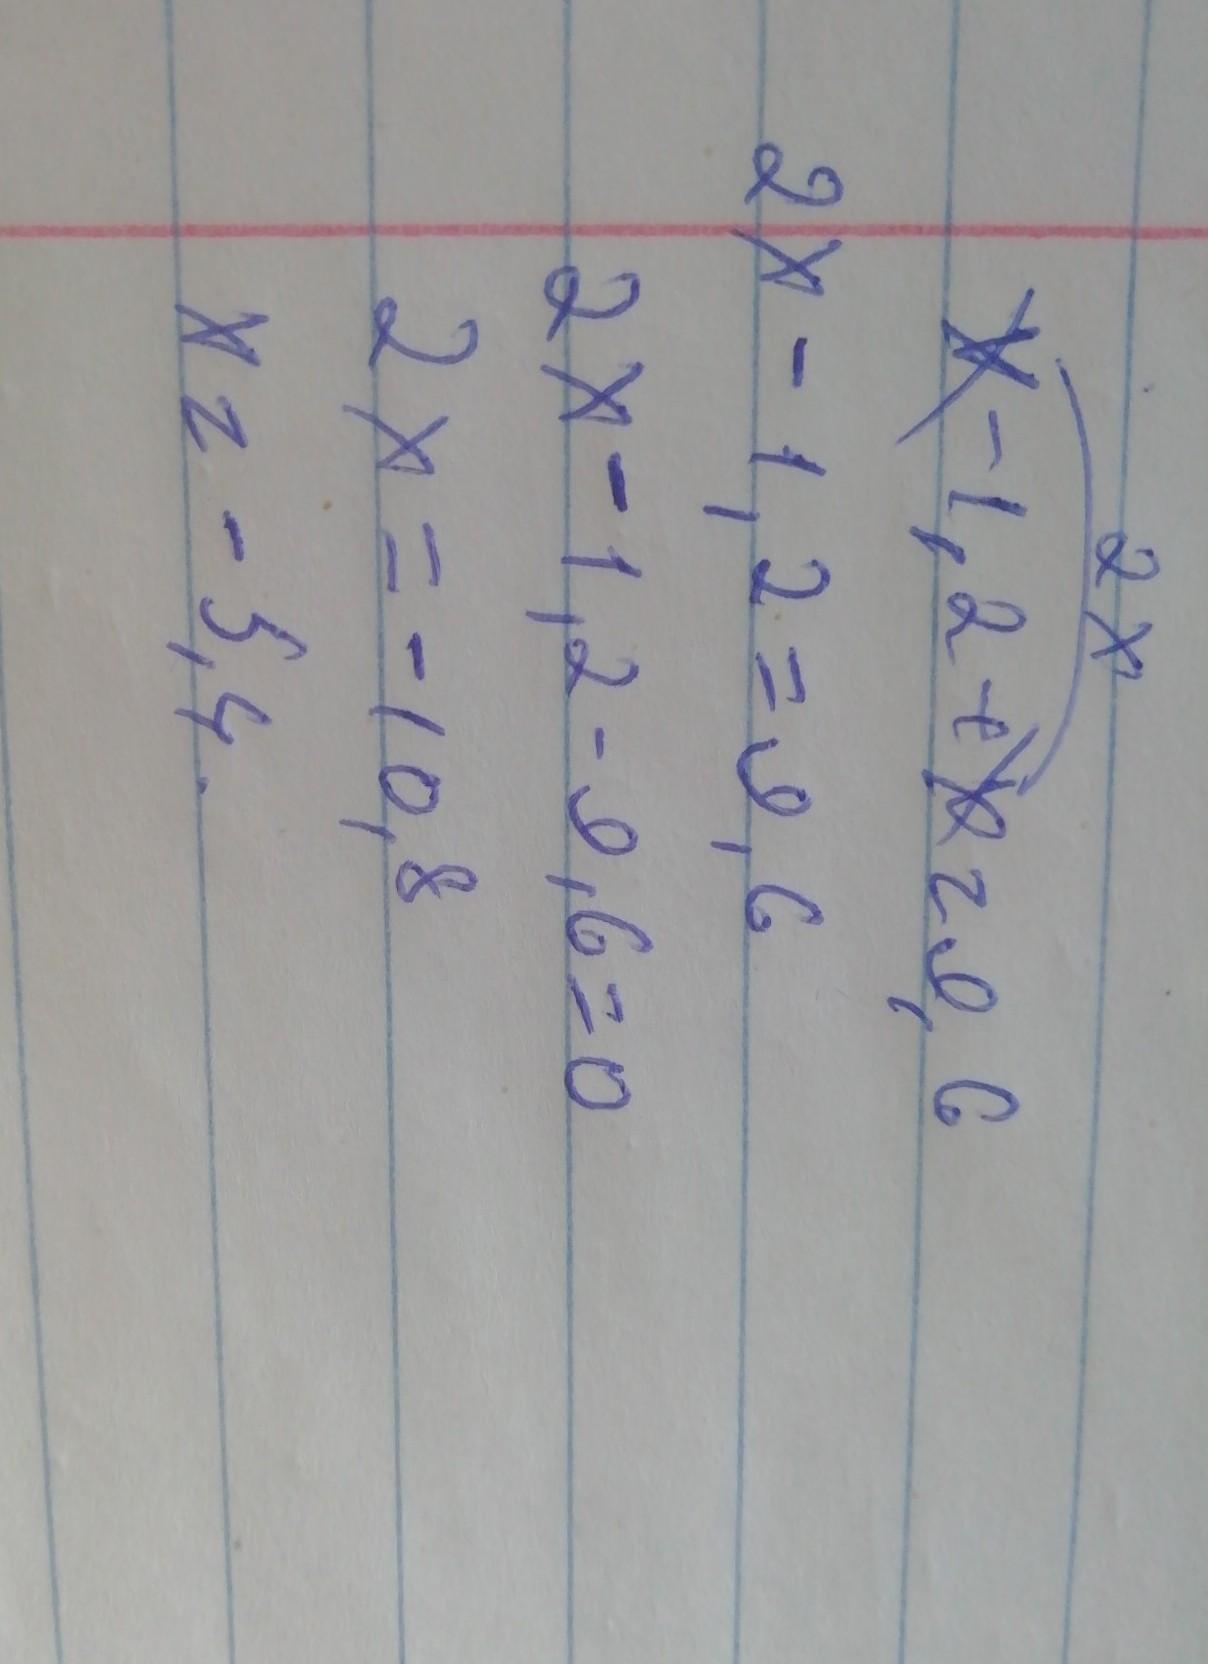 2x
x-1,2+x=9,6
2x-1,2=9,6
2x-1,2-9,6=0
2x=-10,8
x=-5,4.